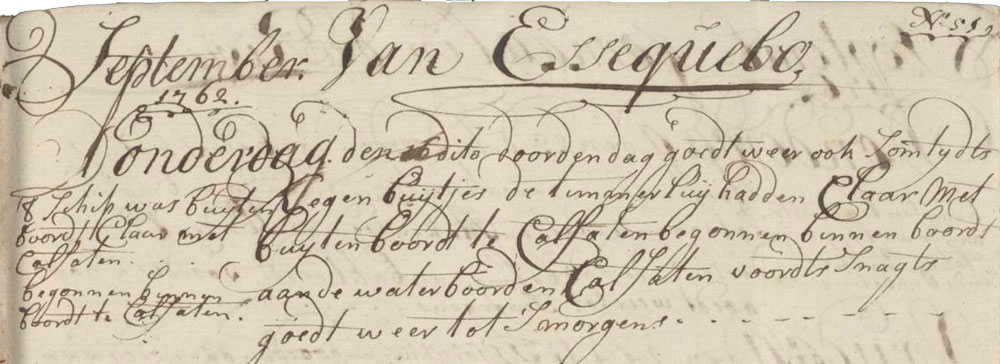 September. Van Essequebo.
1762.
Donderdag. den 16 dito, doorden dag goedt weer ook Somtydts
Regen buijtjes de timmerluij hadden Claar Met
buijten boordt te Calfaten begonnen binnen boordt
aande waterboorden Calfaten voordts Snagts
goedt weer tot Smorgens.
Schip was buijten
boordt Claar met
Calfaten.
begonnen binnen
boordt te Calfaten.